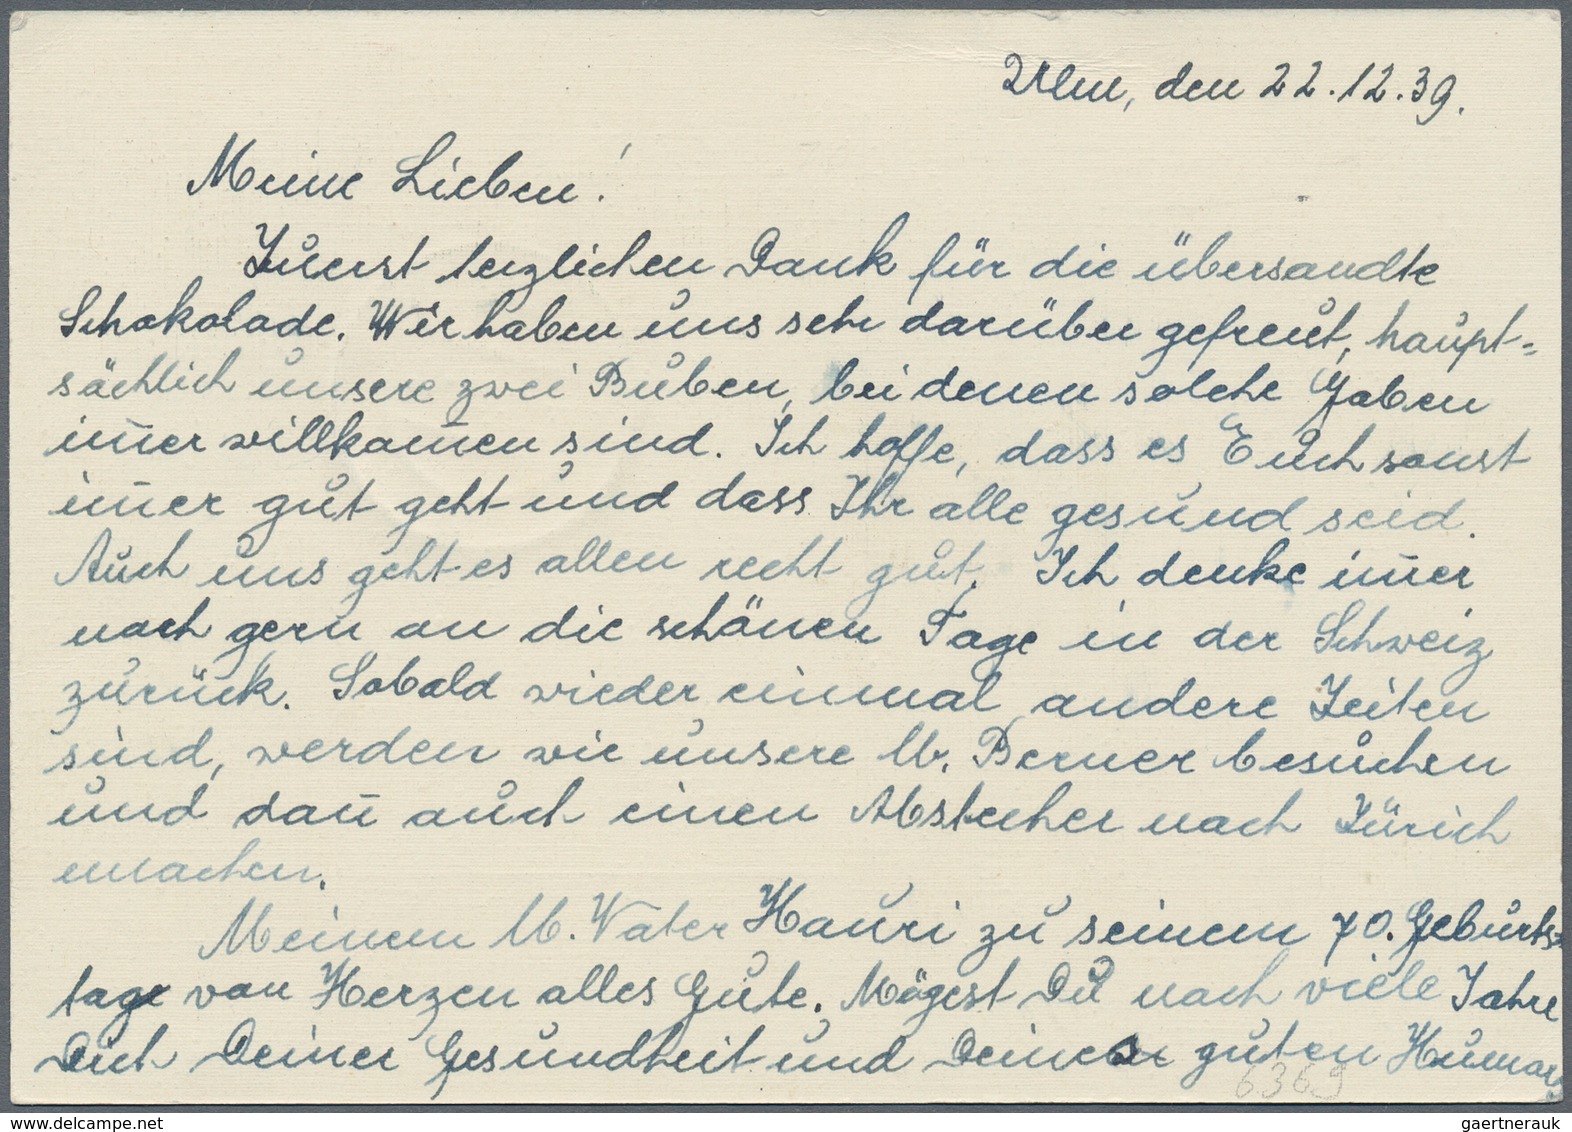 Ulm, den 22.12.39.
Meine Lieben!
Zuerst herzlichen Dank für die übersandte
Schokolade. Wir haben uns sehr darüber gefreut, haupt=
sächlich unsere zwei Buben, bei denen solche Gaben
im̅er willkom̅en sind. Ich hoffe, dass es Euch sonst
im̅er gut geht und dass Ihr alle gesund seid.
Auch uns geht es allen recht gut. Ich denke im̅er
noch gern an die schönen Tage in der Schweiz
zurück. Sobald wieder einmal andere Zeiten
sind, werden wir unsere lb. Berner besuchen
und dan̅ auch einen Abstecher nach Zürich
machen.
Meinem lb. Vater Hauri zu seinem 70. Geburts=
tage von Herzen alles Gute. Mögest Du noch viele Jahre
Dich Deiner Gesundheit und Deines guten Humors
6369
delcampe.net
gaertnerauk